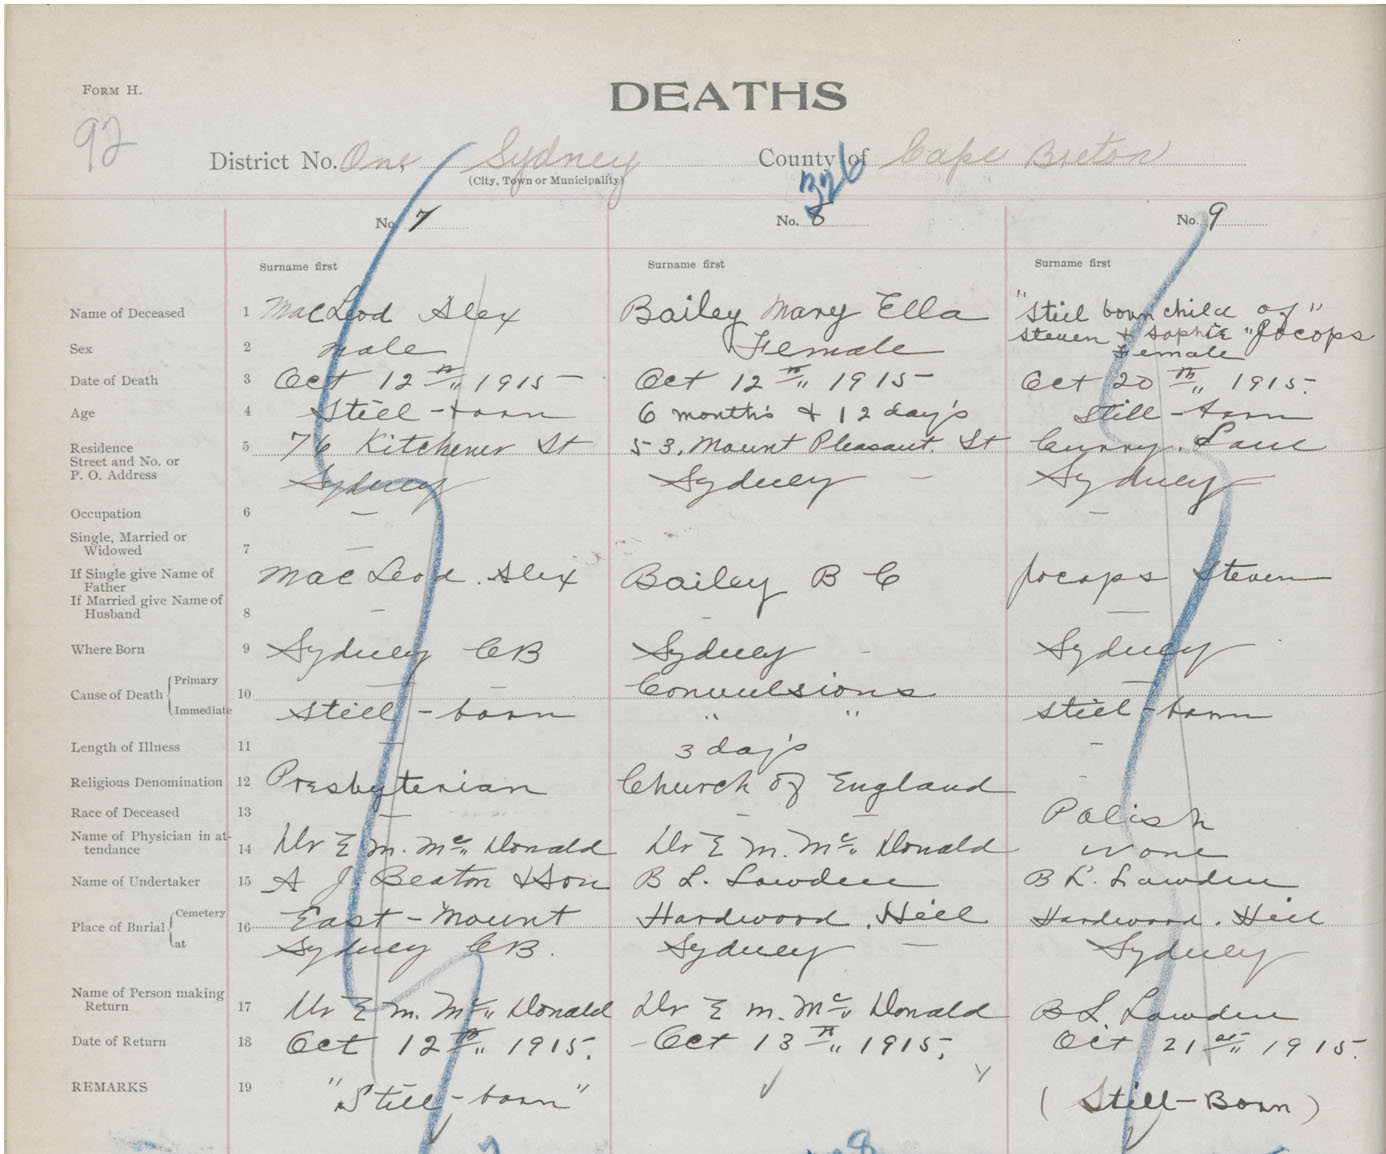 FORM H.
DEATHS
92
District No. One, Sydney County of Cape Breton
(City, Town or Municipality)
326
No. 7 No. 8 No. 9
Surname first Surname first Surname first
Name of Deceased 1 MacLeod Alex Bailey Mary Ella "Still born child of"
Steven & Sophie "Jocops
Sex 2 Male Female Female
Date of Death 3 Oct 12th,, 1915 - Oct 12th,, 1915 - Oct 20th,, 1915.
Age 4 Still-born 6 months & 12 day's Still-born
Residence 5 76 Kitchener St 53. Mount Pleasant. St Curry. Lane
Street and No. or
P. O. Address Sydney Sydney - Sydney
Occupation 6 - -
Single, Married or
Widowed 7 -
If Single give Name of
Father MacLeod. Alex Bailey B C Jocops Steven
If Married give Name of
Husband 8 - - -
Where Born 9 Sydney CB Sydney - Sydney
Cause of Death Primary 10 - - Convulsions -
Immediate Still-born " " Still-born
Length of Illness 11 - 3 day's -
Religious Denomination 12 Presbyterian Church of England -
Race of Deceased 13 - - - Polish
Name of Physician in at-
tendance 14 Dr E M. Mc,, Donald Dr E M. Mc,, Donald None
Name of Undertaker 15 A J. Beaton & Son B L. Lowden B L. Lowden
Place of Burial Cemetery 16 East-Mount Hardwood. Hill Hardwood. Hill
at Sydney CB. Sydney - Sydney
Name of Person making
Return 17 Dr E M. Mc,, Donald Dr E M. Mc,, Donald B L. Lowden
Date of Return 18 Oct 12th,, 1915. - Oct 13th,, 1915. Oct 21st,, 1915.
REMARKS 19 "Still-born" (Still-Born)
8